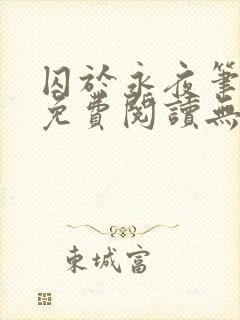 囚於永夜筆
免費閱讀無
東城富